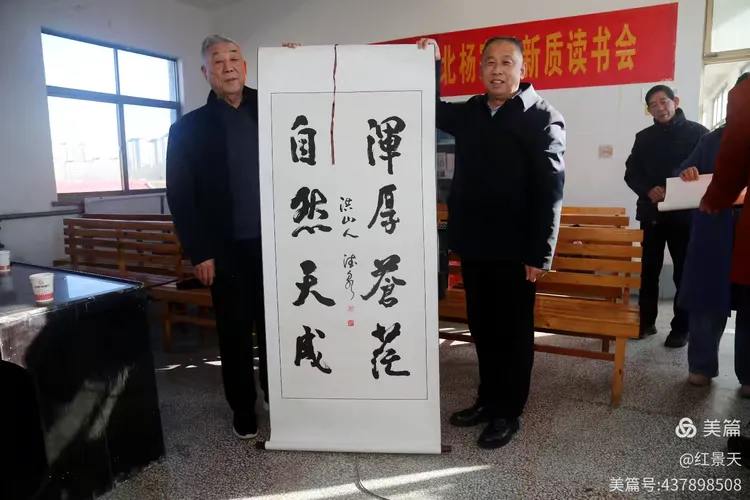 北杨 新质读书会
渾厚蒼茫
自然天成
洪山人
美篇
@红景天
美篇号:437898508